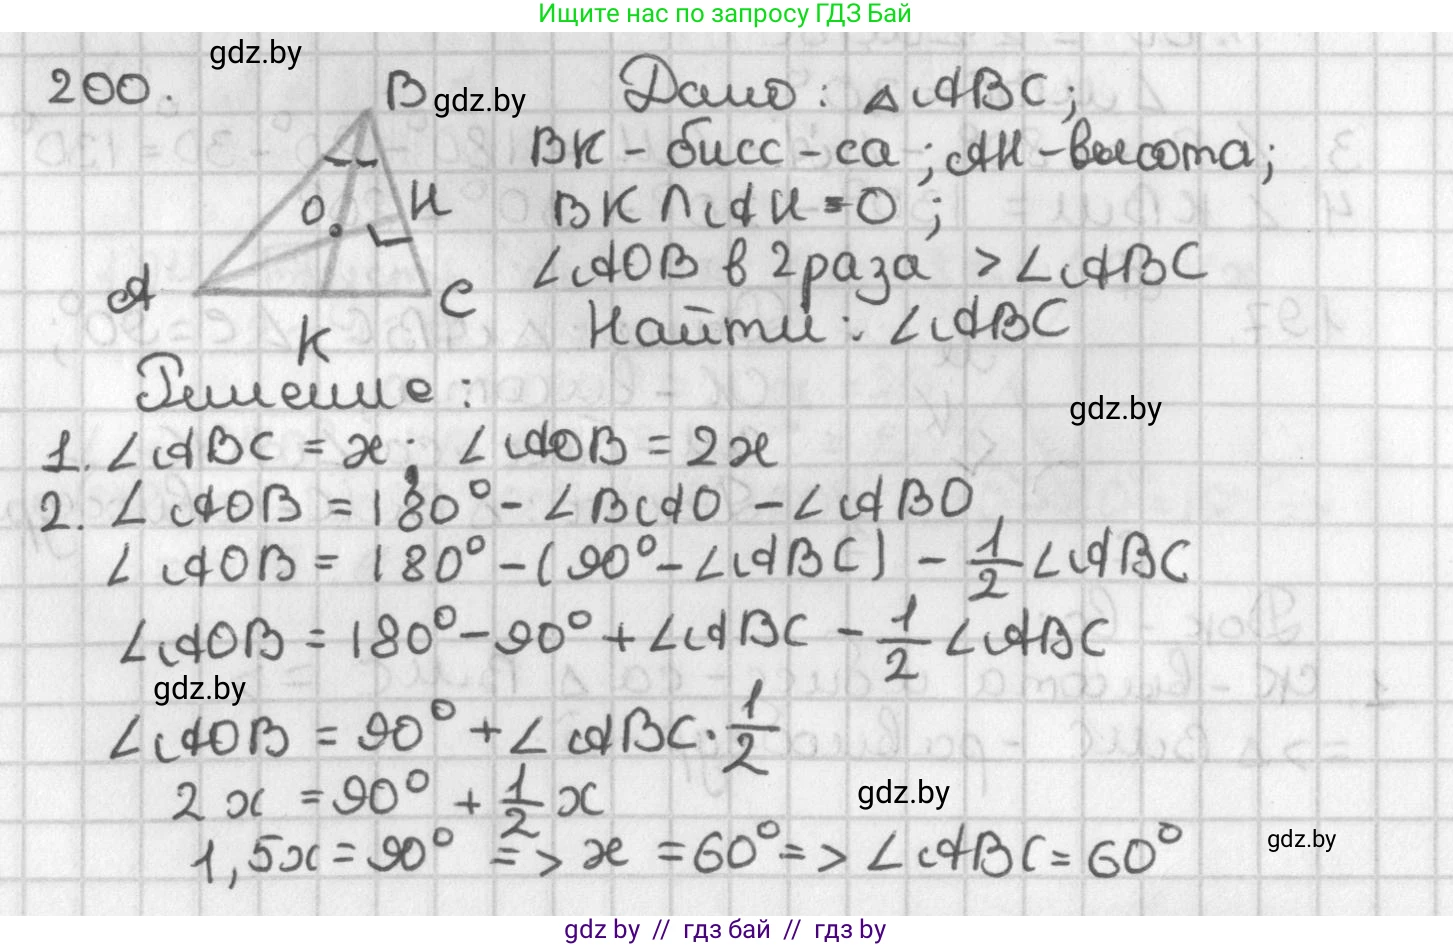 Ищите нас по запросу ГДЗ Бай
gdz.by
200.
B
gdz.by
Дано: △ABC;
BK - бисс-са; AH - высота;
O
H
BK ∩ AH = O;
∠AOB в 2 раза > ∠ABC
A
C
K
Найти: ∠ABC
Решение:
gdz.by
1. ∠ABC = x; ∠AOB = 2x
2. ∠AOB = 180° - ∠BAO - ∠ABO
∠AOB = 180° - (90° - ∠ABC) - 1/2 ∠ABC
∠AOB = 180° - 90° + ∠ABC - 1/2 ∠ABC
gdz.by
∠AOB = 90° + ∠ABC · 1/2
2x = 90° + 1/2 x
gdz.by
1,5x = 90° => x = 60° => ∠ABC = 60°
gdz.by
gdz by // гдз бай // гдз by